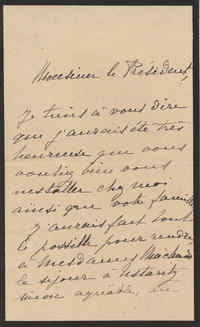 Monsieur le Président,
Je tiens à vous dire
que j'aurais été très
heureuse que vous
vouliez bien vous
installer chez moi
ainsi que votre famille
J'aurais fait tout
le possible pour rendre
à Mesdames
le séjour à
agréable, en